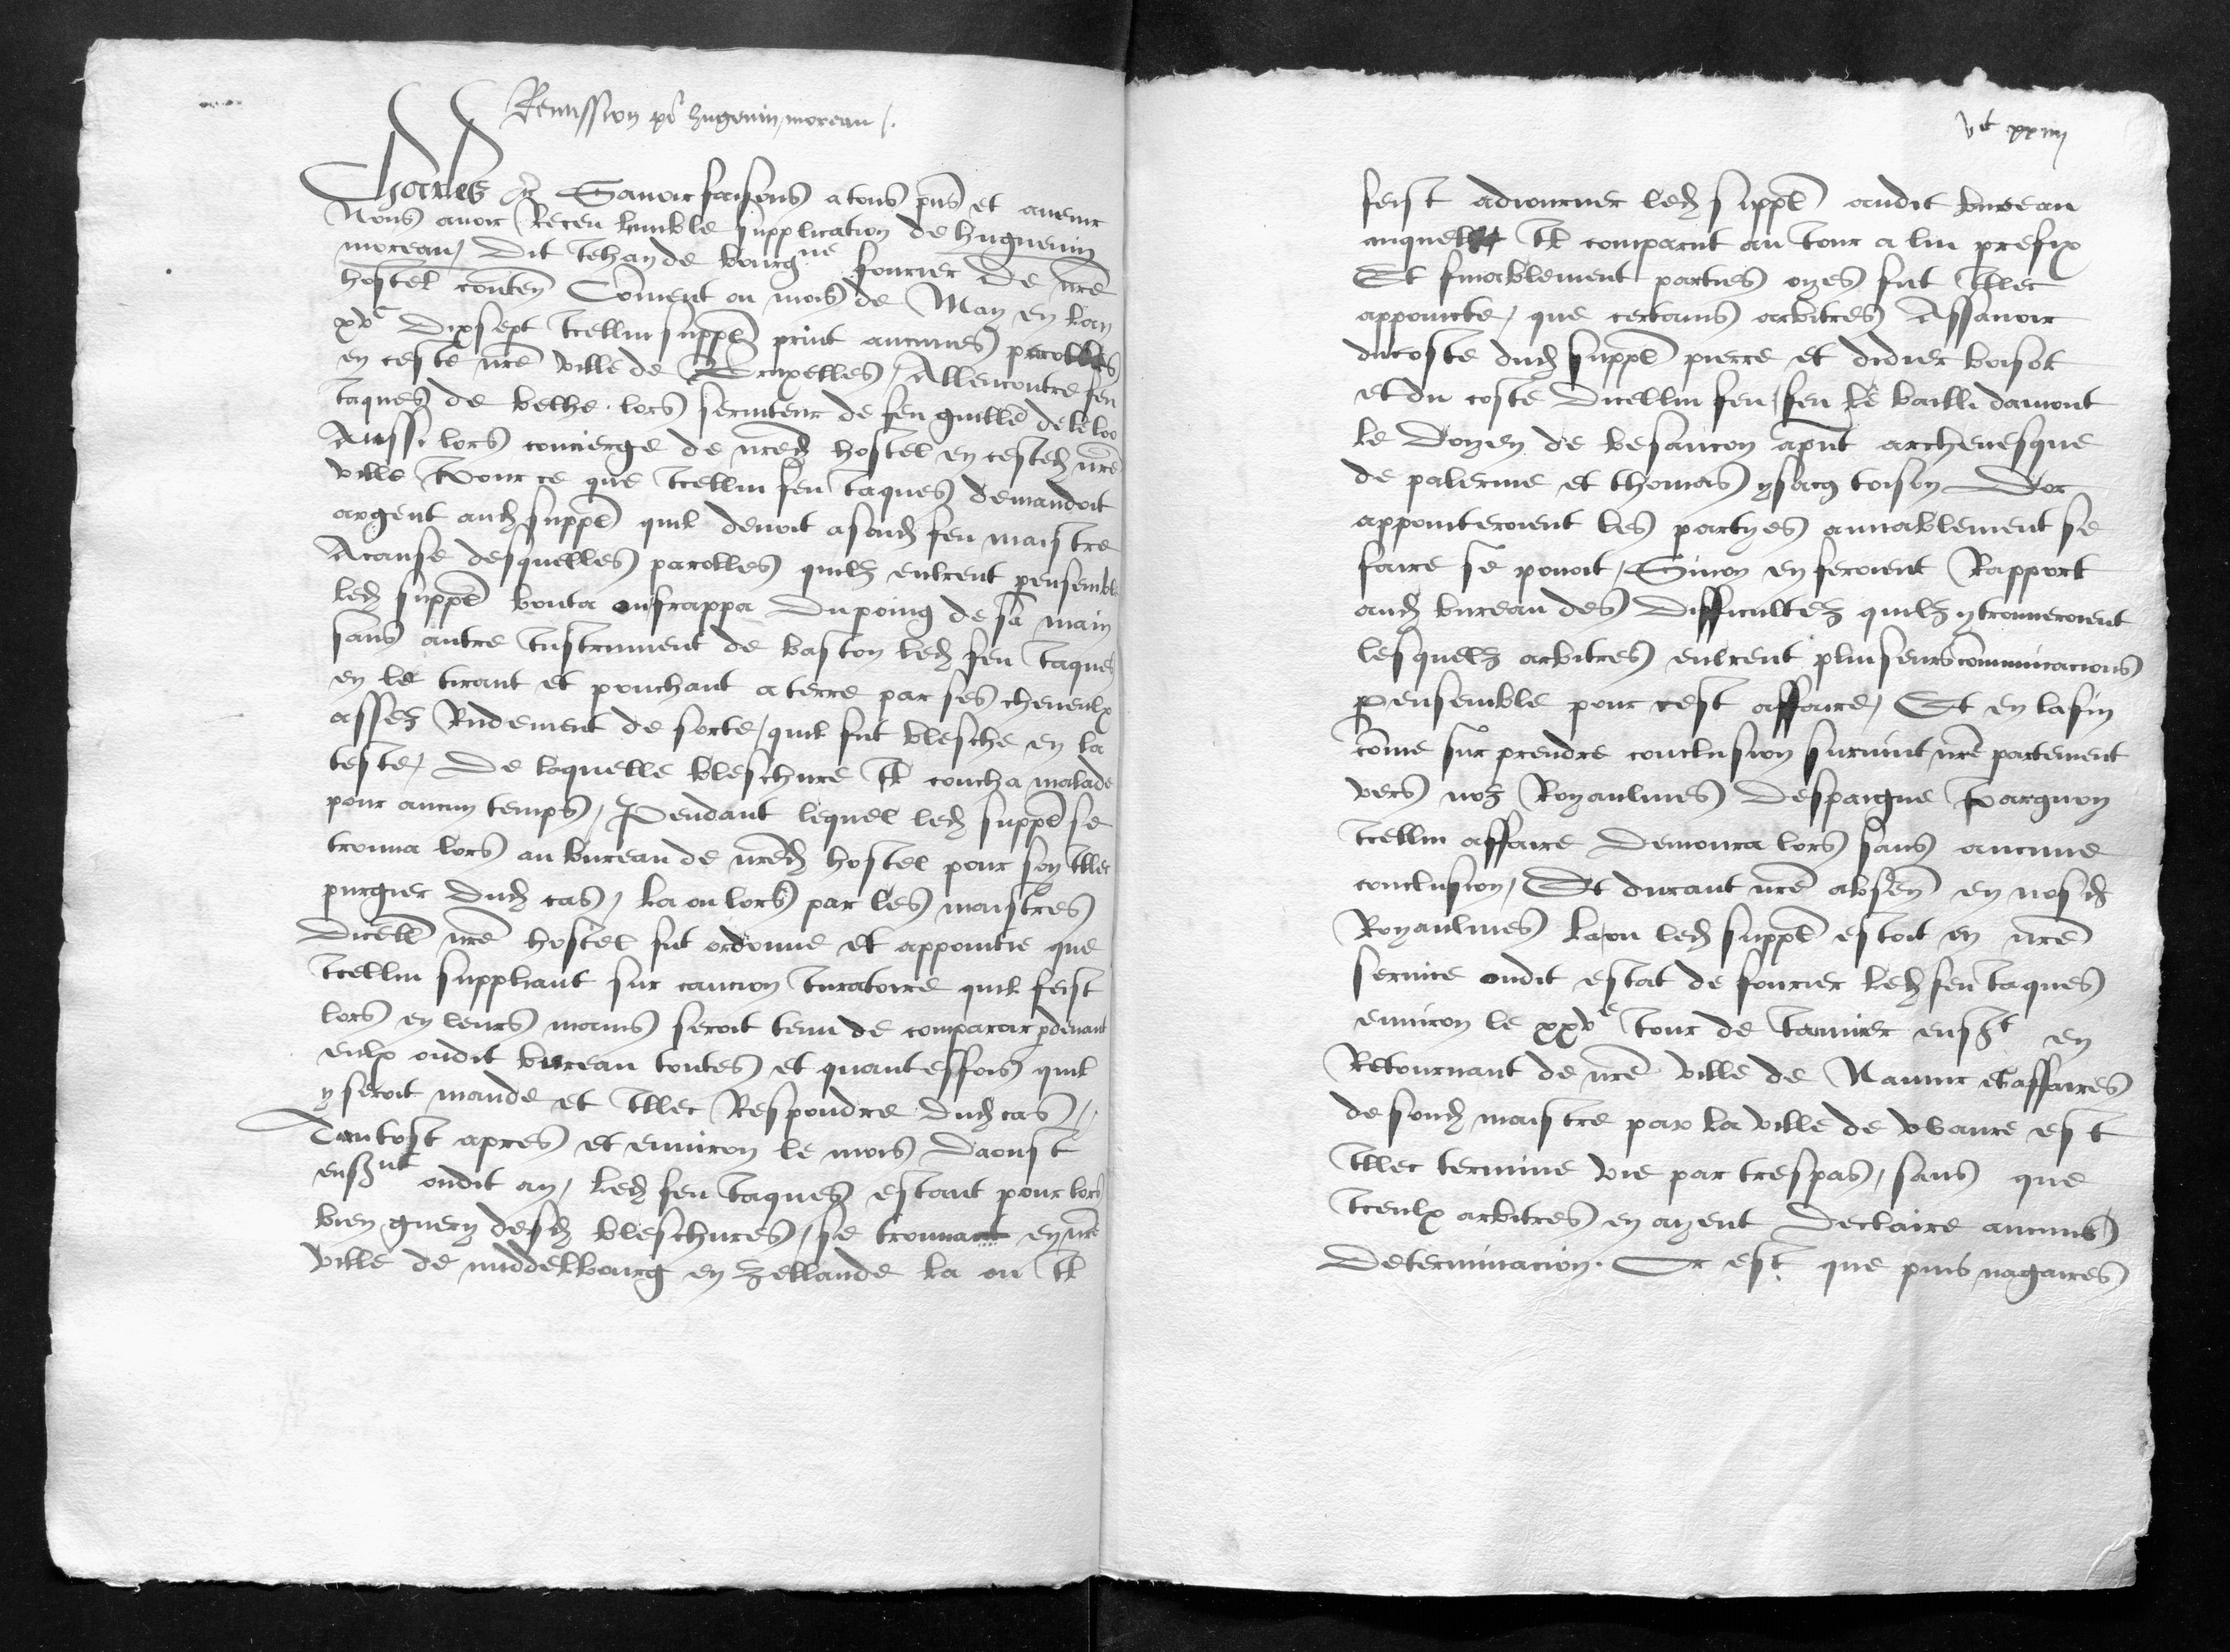 Remission pr hugenin moreau /.
Charles etc Sauoir faisons a tous pns et auenir
Nous auoir Receu lumble supplication de huguenin
moreau / dit Jehan de bourgne fourier de nre
hostel conten Coment ou mois de May en lan
xvc dixsept Icelluy suppl print aucunes parolles
en ceste nre ville de Bruxelles / Allencontre feu
Jaques de lors seruiteur de feu guille de le loo
Aussi lors concierge de nred hostel en cested nre
ville Pour ce que Icelluy feu Jaques demandoit
argent aud suppl quil deuoit a soud feu maistre
A cause desquelles parolles quilz eulrent pensemble
led suppl bouta ou frappa du poing de sa main
sans autre Instrument de baston led feu Jaques
en le tirant et pouchant a terre par ses cheueulx
assez Rudement de sorte / quil fut blesche en la
teste / De laquelle bleschure Il coucha malade
pour aucun temps / Pendant lequel led suppl se
trouua lors au bureau de nred hostel pour soy Illec
purgier dud cas / la ou lors par les maistres
dicell nre hostel fut ordonne et appointie que
Icelluy suppliant sur caucion Iuratoire quil feist
lors en leurs mains seroit tenu de comparoir pdeuant
eulx oudit bureau toutes et quanteffois quil
y seroit mande et Illec Respondre dud cas /
Tantost apres et enuiron le mois daoust
ensznt oudit an / led feu Jaques estant pour lors
bien guery desd bleschures / se trouuant en nre
ville de middelbourg en zellande la ou Il
vc xxiiij
feist adiourner led suppl audit bureau
auquel Il comparut au Jour a luy prefix
Et finablement parties oyes fut Illec
appoincte / que certains arbitres Assauoir
du coste dud suppl pierre et didier boisot
et du coste dicelluy feu / feu le bailli damont
le doyen de besancon apnt archeuesque
de palerme et thomas ysacq toison dor
appointeroient les partyes amiablement se
faire se pouoit / Sinon en feroient Rapport
aud bureau des difficultez quilz y trouueroient
lesquelz arbitres eulrent pluiseurs communicacions
pensemble pour cest affaire / Et en la fin
come sur prendre conclusion suruint nre partement
vers noz Royaulmes despaigne Parquoy
Icelluy affaire demoura lors sans aucune
conclusion / Et durant nre absen en nosd
Royaulmes la ou led suppl estoit en nre
seruice oudit estat de fourier led feu Jaques
enuiron le xxve Jour de Januier enszt en
Retournant de nre ville de Namur es affaires
de soud maistre par la ville de wavre est
Illec termine vie par trespas / sans que
Iceulx arbitres en ayent declaire aucuns
determinacion. Or est que puis nagaires